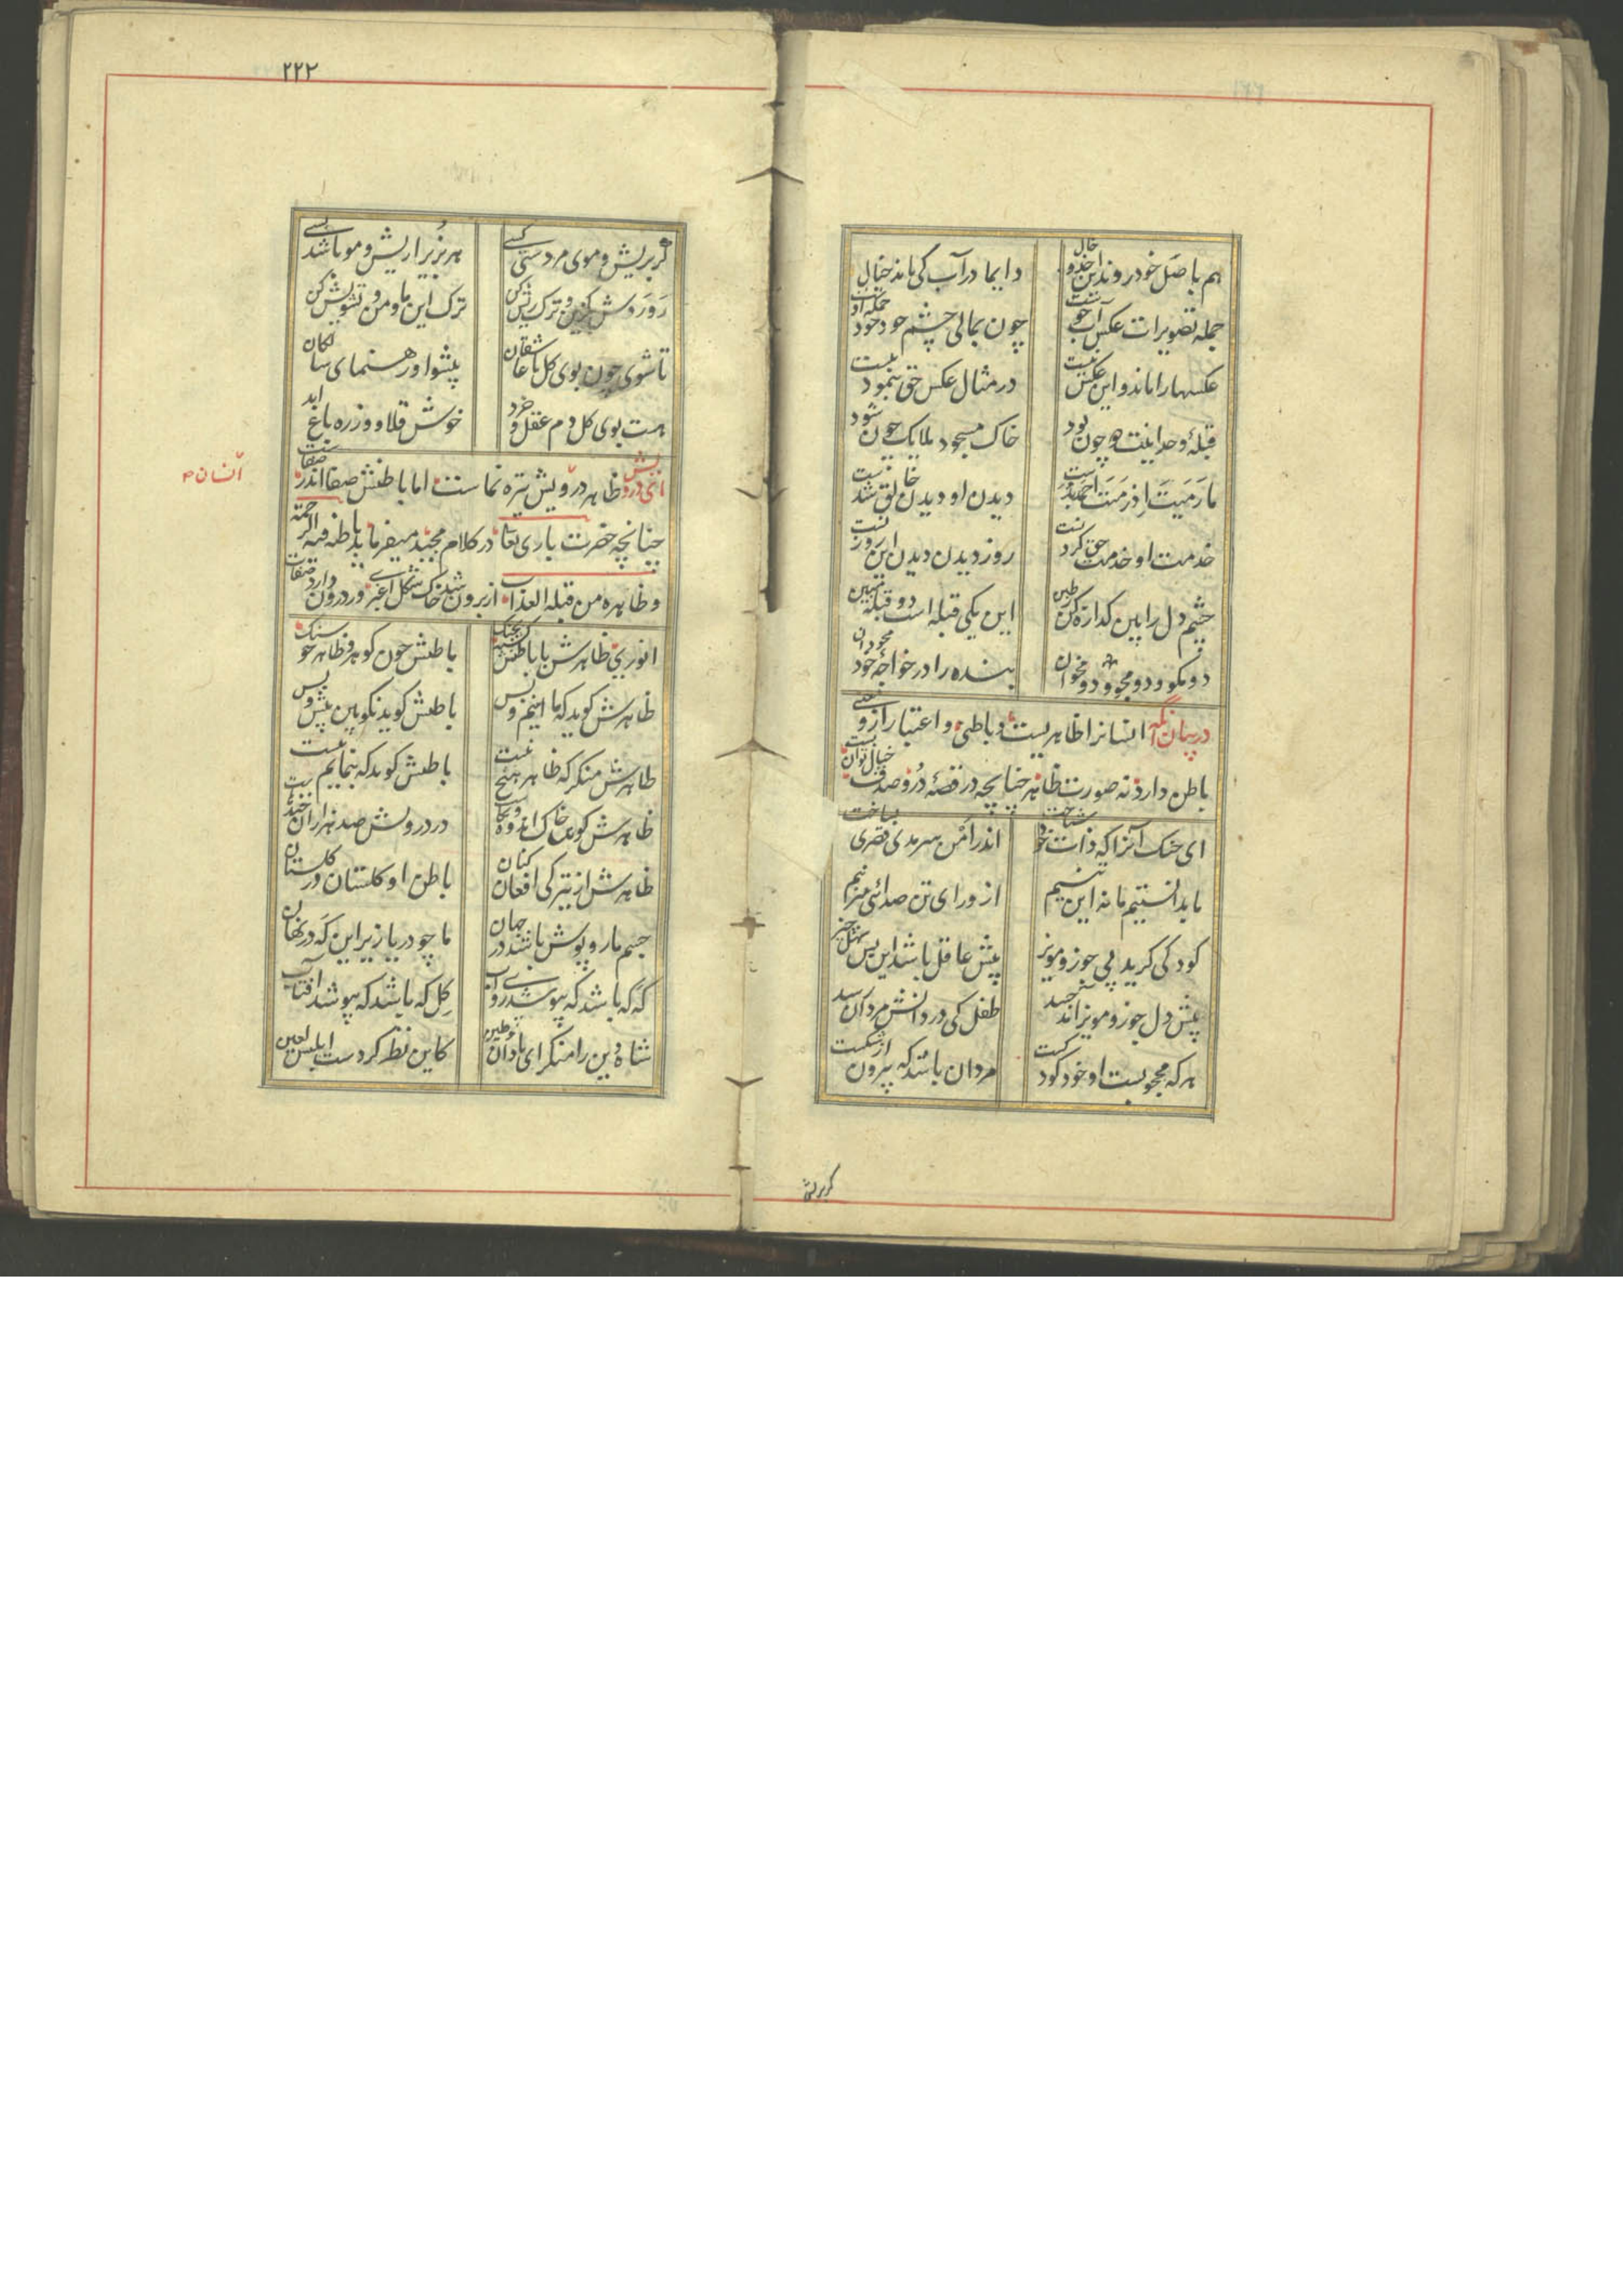 هم باصل خود روند این خد و خال
دایما در آب کی ماند خیال
جمله تصویرات عکس آب جوست
چون بمالی چشم خود خود جمله اوست
عکسها را ماند و این عکس نیست
در مثال عکس حق بنمودنیست
قبلهٔ وحدانیت دو چون بود
خاک مسجود ملایک چون شود
ما رمیت اذ رمیت احمد بدست
دیدن او دیدن خالق شدست
خدمت او خدمت حق کردنست
روز دیدن دیدن این روزنست
چشم دل را بین گذاره کن ز طین
این یکی قبله است دو قبله مبین
دو مگو و دو مجو و دو مخوان
بنده را در خواجهٔ خود محو دان
در بیان آنکه انسانرا ظاهریست و باطنی و اعتبار از روی معنی
باطن دارد نه صورت ظاهر چنانچه در قصهٔ در و صدف خیال توان بست
ای خنک آنرا که ذات خود شناخت
اندر امن سرمدی قصری بساخت
ما بدانستیم ما نه این تنیم
از ورای تن صدائی میزنیم
کودکی گرید پی جوز و مویز
پیش عاقل باشد این بس سهل چیز
پیش دل جوز و مویز اند جسد
طفل کی در دانش مردان رسد
هر که محجوبست او خود کودکست
مردان باشد که بیرون از شکست
گر بریش
۲۲۲
گر بریش و موی مردستی کسی
هر بزیرا ریش و مو باشد بسی
رو روش بگزین و ترک ریش کن
ترک این ما و من و تشویش کن
تا شوی چون بوی گل با عاشقان
پیشوا و رهنمای سالکان
هست بوی گل دم عقل و خرد
خوش قلاووز ره باغ ابد
ای درویش ظاهر درویش تیره نماست اما باطنش صفا اندر صفاست
انسان
چنانچه حضرت باری تعا در کلام مجید میفرماید باطنه فیه الرحمة
و ظاهره من قبله العذاب از برون شد خاک شکل اغبری و در درون دارد صفات
انوری ظاهرش با باطنش گشته بجنگ
باطنش چون گوهر و ظاهر چو سنگ
ظاهرش گوید که ما اینیم و بس
باطنش گوید نکو بین پیش و پس
ظاهرش منکر که ظاهر هیچ نیست
باطنش گوید که بنمایم بیست
در درونش صد هزاران خنده
ظاهرش از تیرگی افغان کنان
باطن او گلستان در گلستان
جسم ما روپوش باشد در جهان
ما چو دریا زیر این که در نهان
که که باشد که بپوشد روی آب
گل که باشد که بپوشد آفتاب
شاه دین را منگر ای نادان بطین
کاین نظر کردست ابلیس لعین